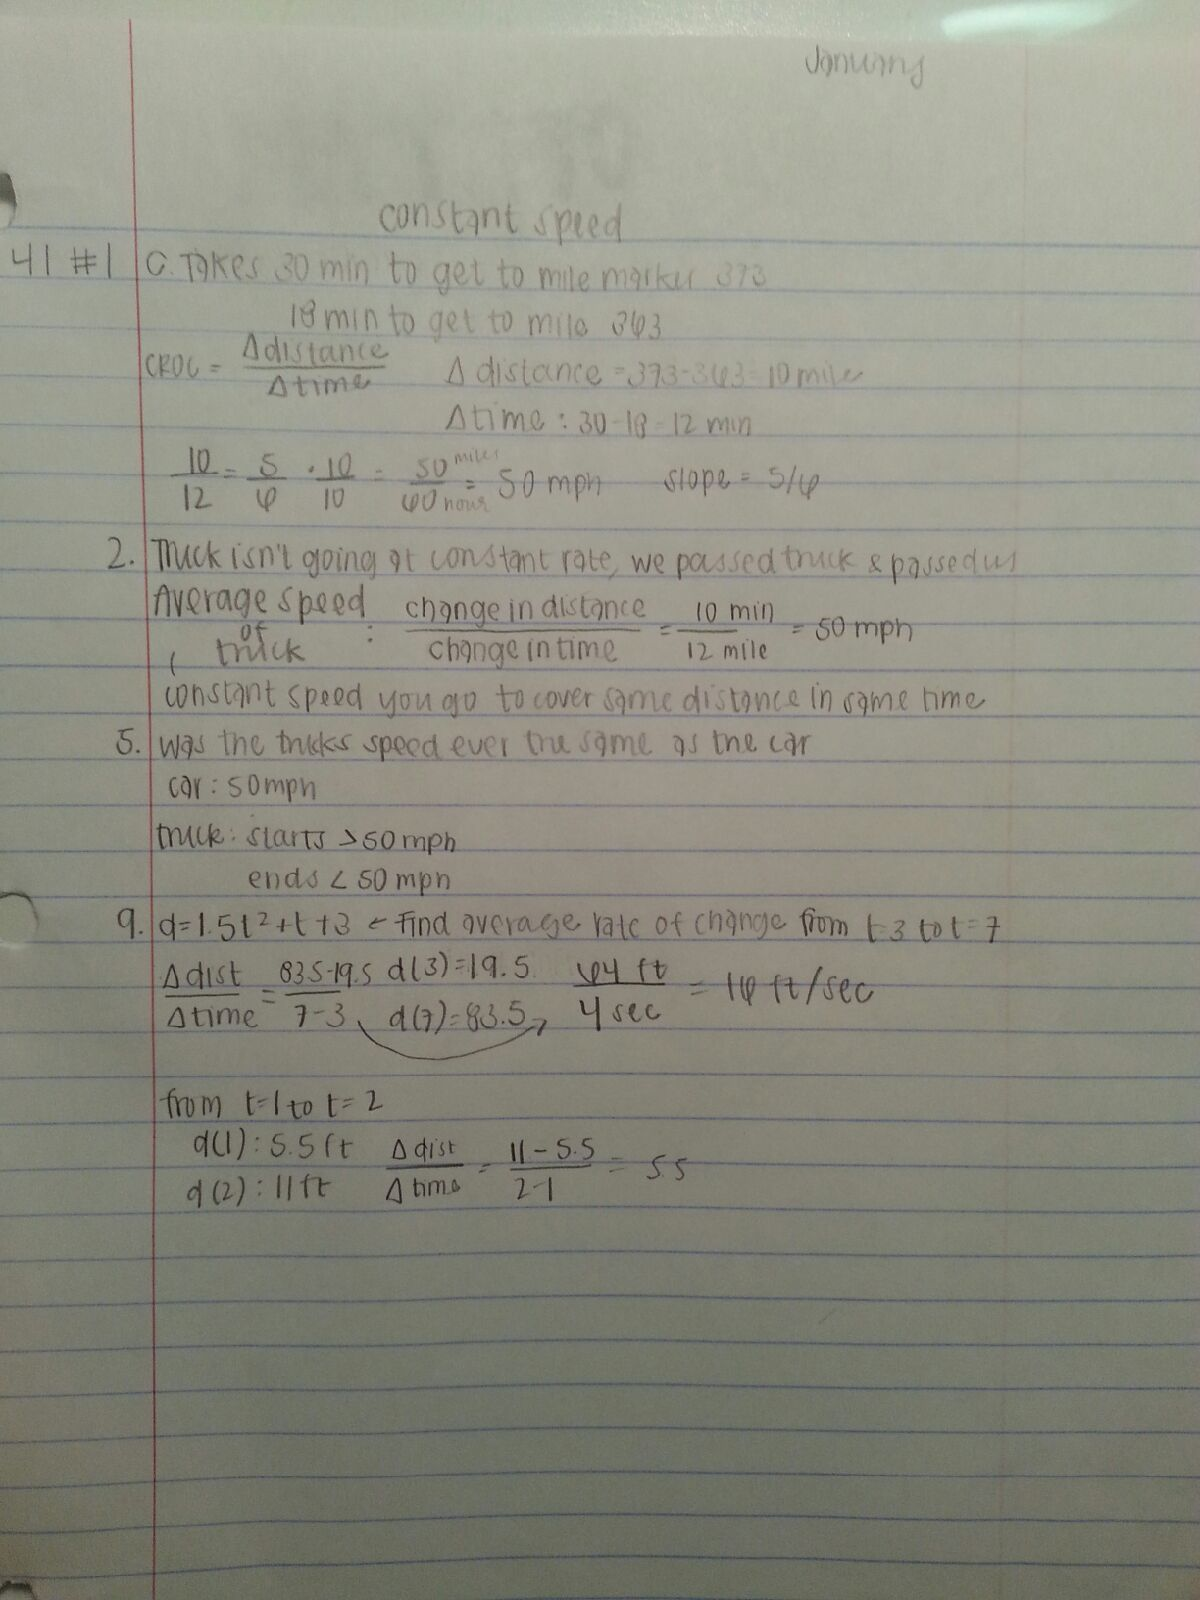 January
constant speed
41 #1 C. Takes 30 min to get to mile marker 373
18 min to get to mile 363
CROC = Δdistance / Δtime Δ distance = 373-363=10 mile
Δtime : 30-18=12 min
10/12 = 5/6 · 10/10 = 50 miles/60 hour = 50 mph slope = 5/6
2. Truck isn't going at constant rate, we passed truck & passed us
Average speed of truck : change in distance / change in time = 10 min / 12 mile = 50 mph
constant speed you go to cover same distance in same time
5. was the trucks speed ever the same as the car
car : 50mph
truck: starts >50mph
ends < 50 mph
9. d=1.5t²+t+3 ← Find average rate of change from t=3 to t=7
Δdist / Δtime = 83.5-19.5 / 7-3 d(3)=19.5 64 ft / 4 sec = 16 ft/sec
d(7)=83.5
from t=1 to t=2
d(1): 5.5ft Δ dist / Δ time = 11-5.5 / 2-1 = 5.5
d(2): 11ft